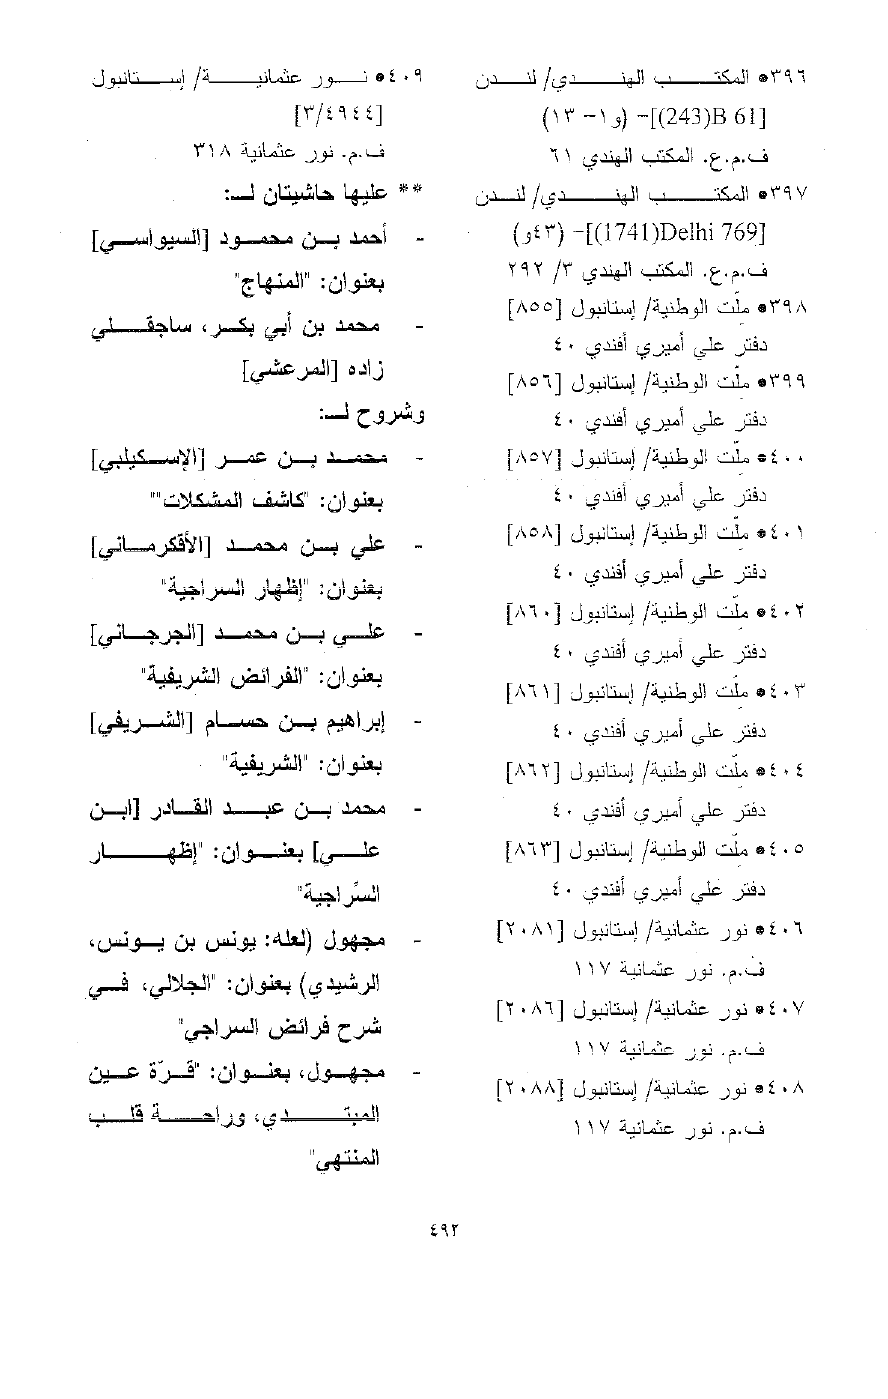 ٣٩٦* المكتب الهندي/ لندن
[B 61(243)]- (و١- ١٣)
ف.م.ع. المكتب الهندي ٦١
٣٩٧* المكتب الهندي/ لندن
[Delhi 769(1741)]- (٤٣و)
ف.م.ع. المكتب الهندي ٣/ ٢٩٢
٣٩٨* ملّت الوطنية/ إستانبول [٨٥٥]
دفتر علي أميري أفندي ٤٠
٣٩٩* ملّت الوطنية/ إستانبول [٨٥٦]
دفتر علي أميري أفندي ٤٠
٤٠٠* ملّت الوطنية/ إستانبول [٨٥٧]
دفتر علي أميري أفندي ٤٠
٤٠١* ملّت الوطنية/ إستانبول [٨٥٨]
دفتر علي أميري أفندي ٤٠
٤٠٢* ملّت الوطنية/ إستانبول [٨٦٠]
دفتر علي أميري أفندي ٤٠
٤٠٣* ملّت الوطنية/ إستانبول [٨٦١]
دفتر علي أميري أفندي ٤٠
٤٠٤* ملّت الوطنية/ إستانبول [٨٦٢]
دفتر علي أميري أفندي ٤٠
٤٠٥* ملّت الوطنية/ إستانبول [٨٦٣]
دفتر علي أميري أفندي ٤٠
٤٠٦* نور عثمانية/ إستانبول [٢٠٨١]
ف.م. نور عثمانية ١١٧
٤٠٧* نور عثمانية/ إستانبول [٢٠٨٦]
ف.م. نور عثمانية ١١٧
٤٠٨* نور عثمانية/ إستانبول [٢٠٨٨]
ف.م. نور عثمانية ١١٧
٤٠٩* نور عثمانية/ إستانبول
[٣/٤٩٤٤]
ف.م. نور عثمانية ٣١٨
** عليها حاشيتان لـ:
- أحمد بن محمود [السيواسي]
بعنوان: "المنهاج"
- محمد بن أبي بكر، ساجقلي
زاده [المرعشي]
وشروح لـ:
- محمد بن عمر [الإسكيلبي]
بعنوان: "كاشف المشكلات""
- علي بن محمد [الأقكرماني]
بعنوان: "إظهار السراجية"
- علي بن محمد [الجرجاني]
بعنوان: "الفرائض الشريفية"
- إبراهيم بن حسام [الشريفي]
بعنوان: "الشريفية"
- محمد بن عبد القادر [ابن
علي] بعنوان: "إظهار
السّراجية"
- مجهول (لعله: يونس بن يونس،
الرشيدي) بعنوان: "الجلالي، في
شرح فرائض السراجي"
- مجهول، بعنوان: "قرّة عين
المبتدي، وراحة قلب
المنتهي"
٤٩٢